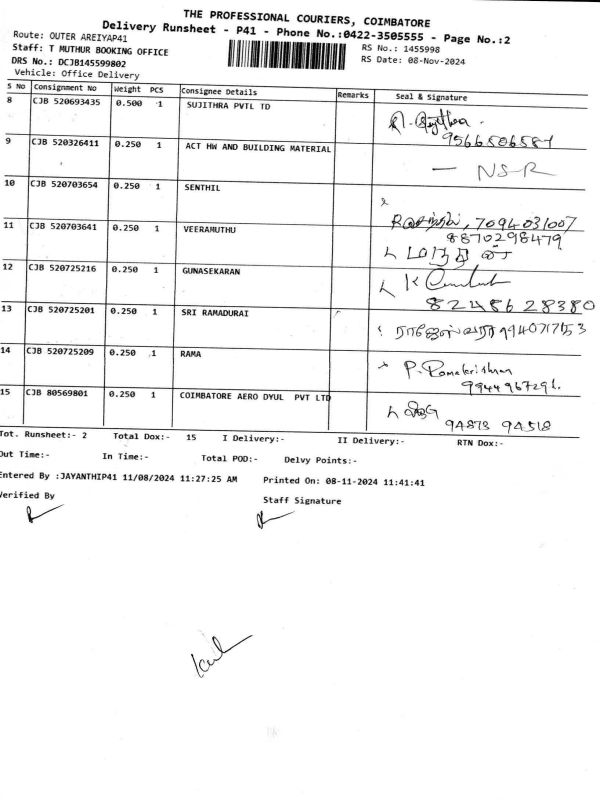 THE PROFESSIONAL COURIERS, COIMBATORE
Delivery Runsheet - P41 - Phone No.:0422-3505555 - Page No.:2
Route: OUTER AREIYAP41
RS No.: 1455998
Staff: T MUTHUR BOOKING OFFICE
RS Date: 08-Nov-2024
DRS No.: DCJB145599802
Vehicle: Office Delivery
S No Consignment No Weight PCS Consignee Details Remarks Seal & Signature
8 CJB 520693435 0.500 1 SUJITHRA PVTL TD
9566506584
9 CJB 520326411 0.250 1 ACT HW AND BUILDING MATERIAL
- NSR
10 CJB 520703654 0.250 1 SENTHIL
7094031007
11 CJB 520703641 0.250 1 VEERAMUTHU
8870298479
12 CJB 520725216 0.250 1 GUNASEKARAN
8248628380
13 CJB 520725201 0.250 1 SRI RAMADURAI
14 CJB 520725209 0.250 1 RAMA
P. Ramakrithnan
9944967291.
15 CJB 80569801 0.250 1 COIMBATORE AERO DYUL PVT LTD
94873 94518
Tot. Runsheet:- 2 Total Dox:- 15 I Delivery:- II Delivery:- RTN Dox:-
Out Time:- In Time:- Total POD:- Delvy Points:-
Entered By :JAYANTHIP41 11/08/2024 11:27:25 AM Printed On: 08-11-2024 11:41:41
Verified By Staff Signature